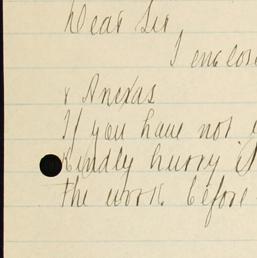 Dear Sir
I enclos
& Anexas
If you have not
Kindly hurry it
the work before